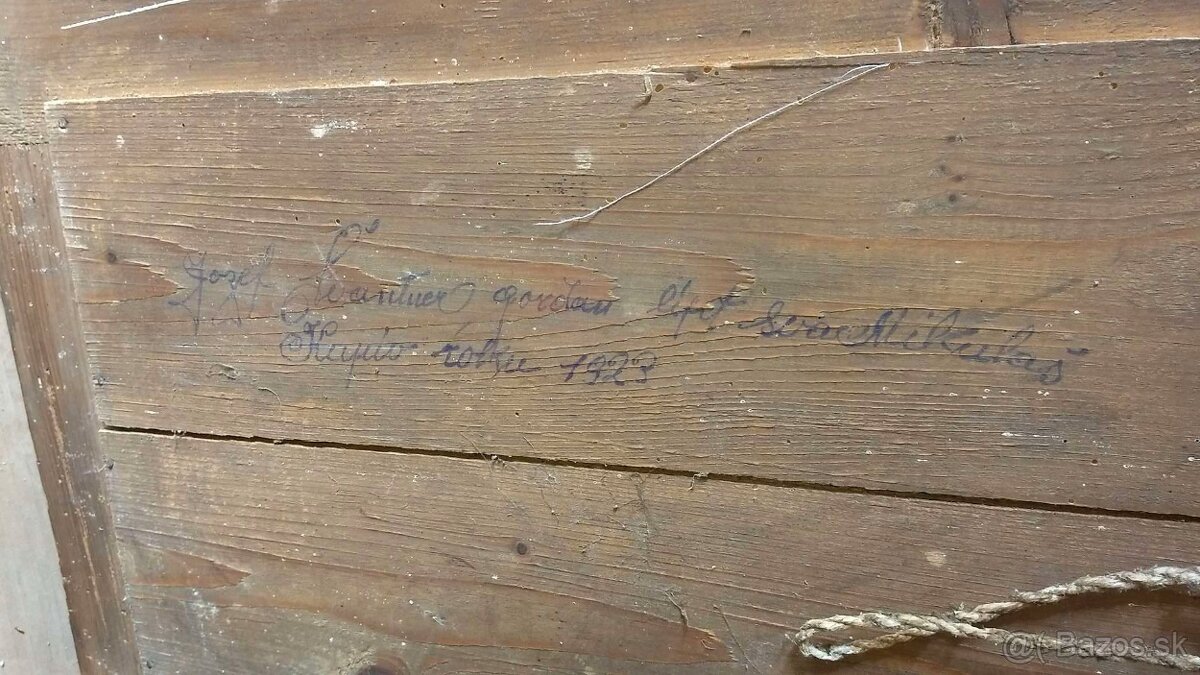 Jozef Švantner gordan lipt svr Mikulaš
Kupil roku 1923
@( Bazos.sk